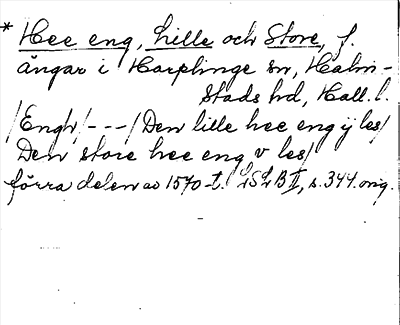 * Hee eng, Lille och Store, f.
ängar i Harplinge sn, Halm-
stads hd, Hall. l.
/Engh/ --- / Den lille hee eng ij les/
Den store hee eng v les/
förra delen av 1570-t. LSLB II, s. 344. orig.